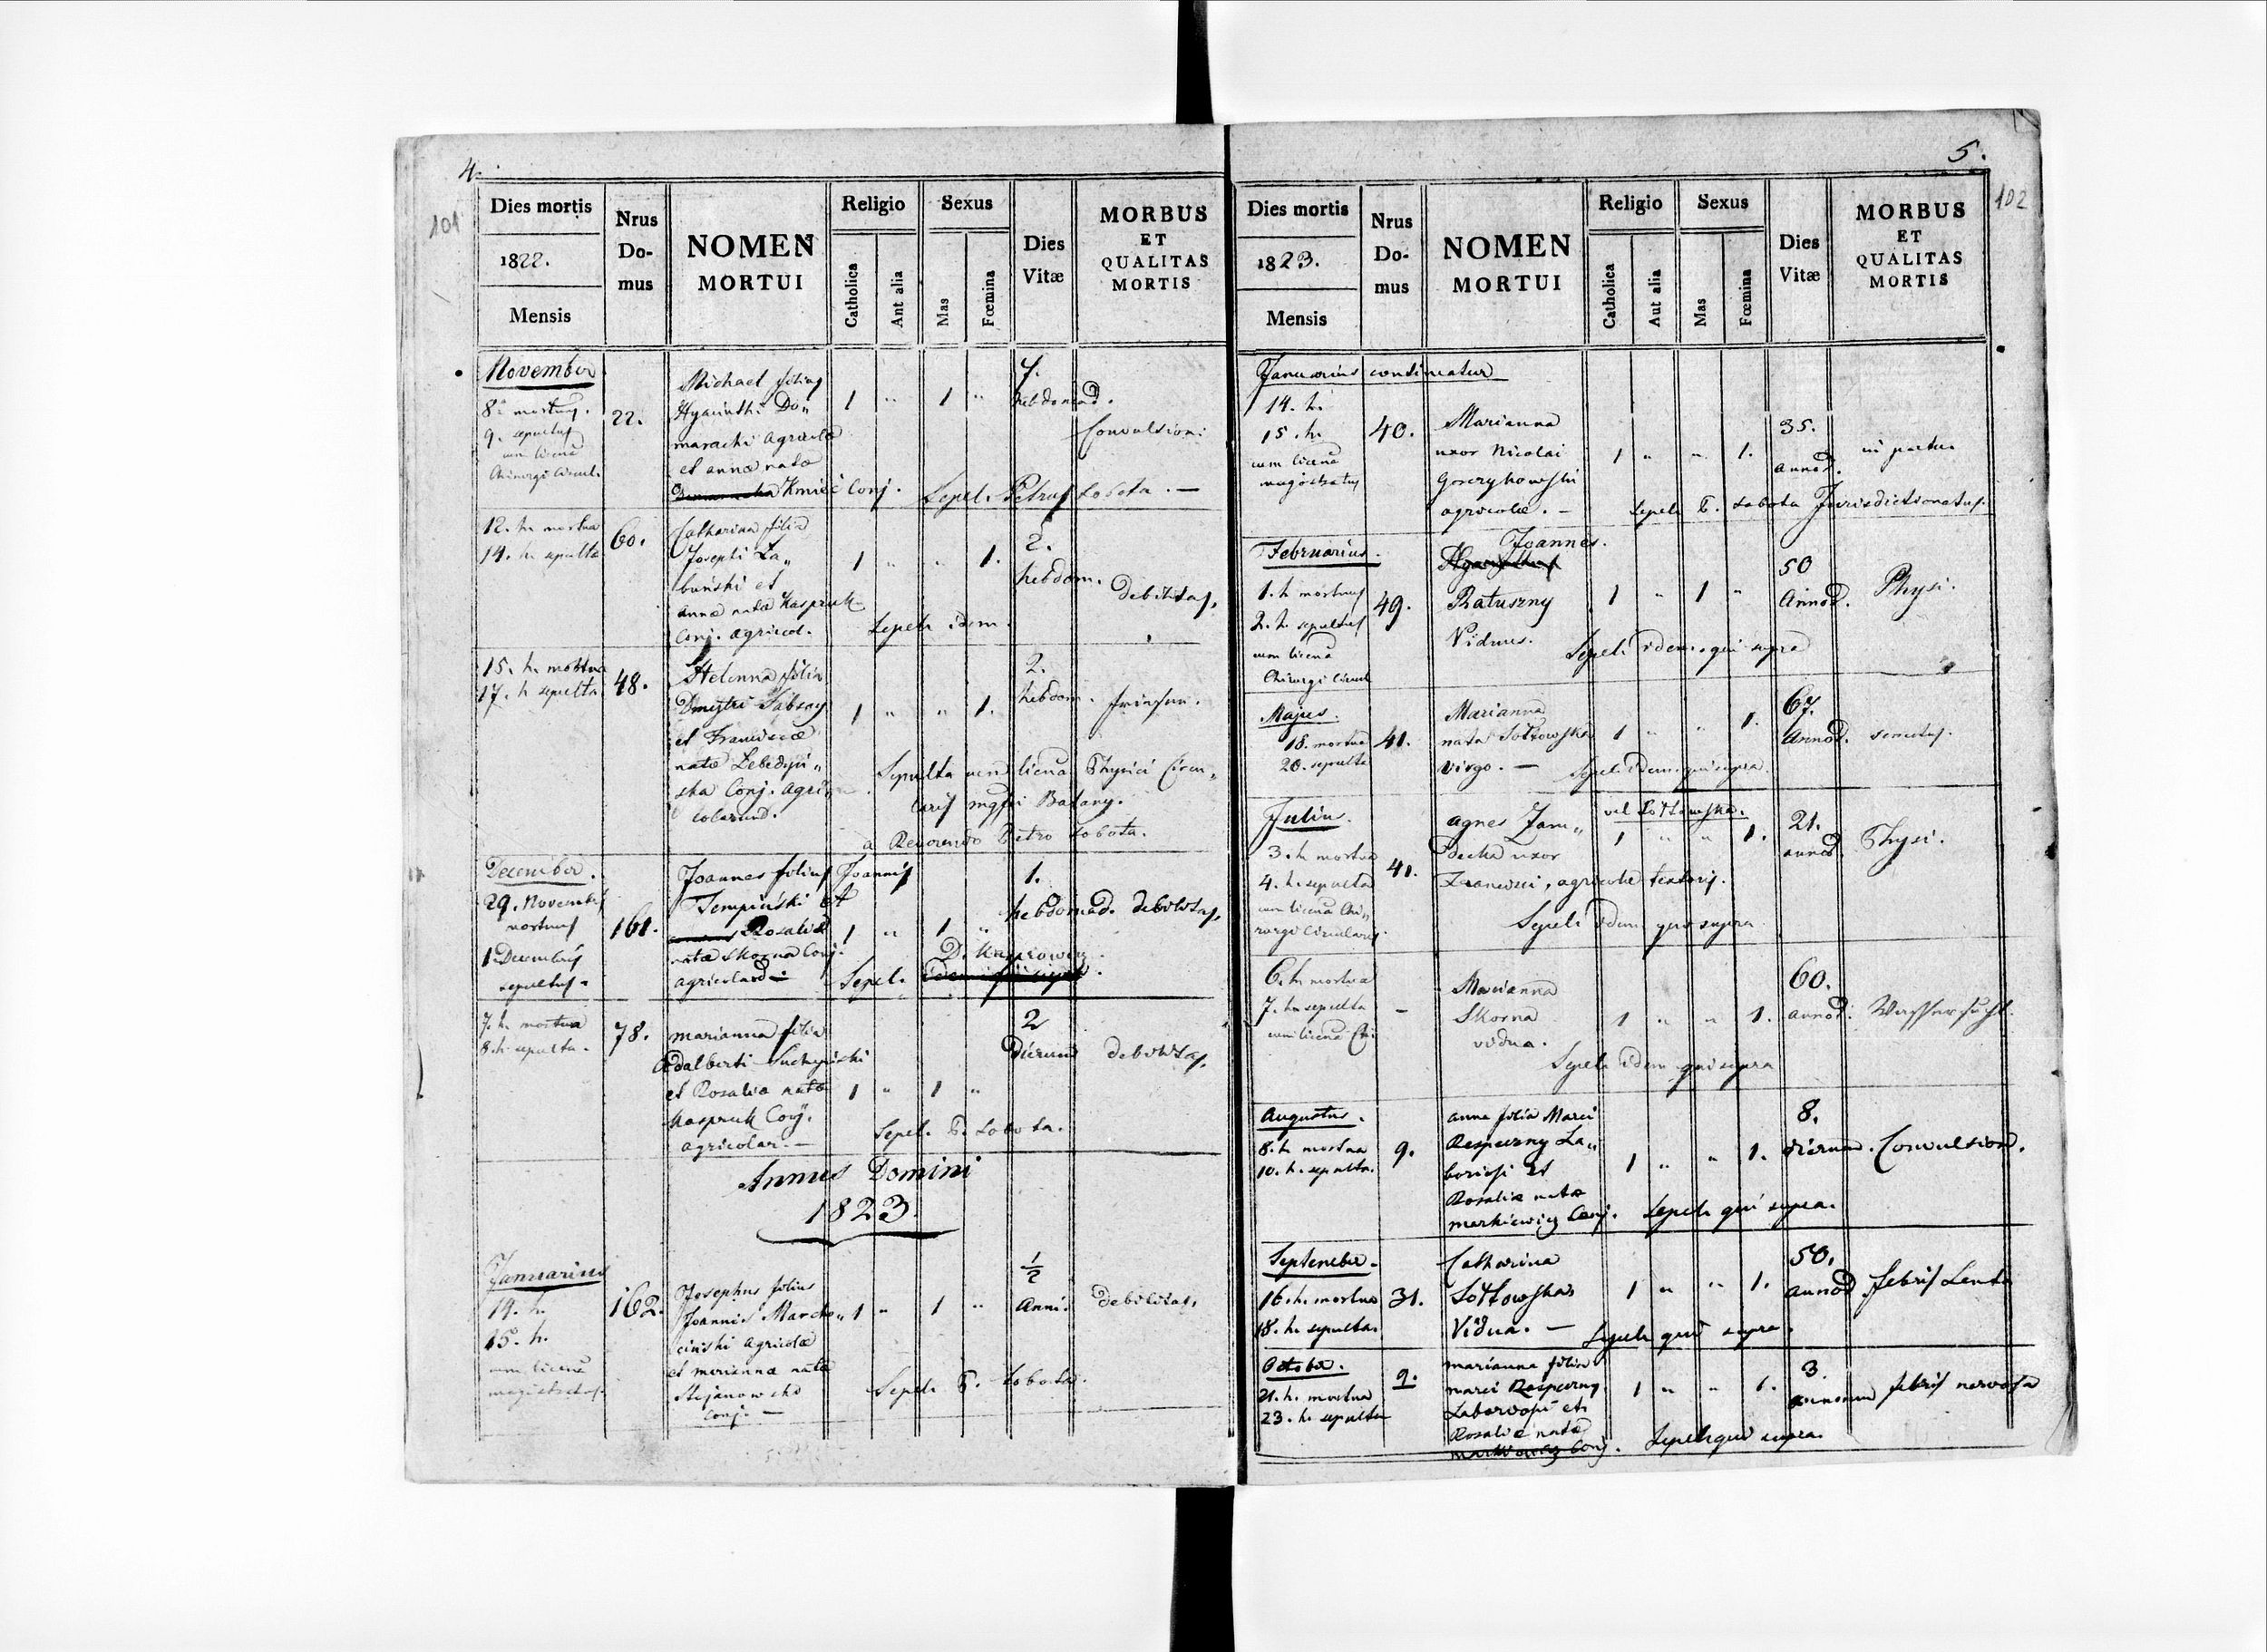 4.
101
Dies mortis
1822.
Mensis
Nrus Do- mus
NOMEN MORTUI
Religio
Catholica
Aut alia
Sexus
Mas
Fœmina
Dies Vitæ
MORBUS ET QUALITAS MORTIS
November
8a mortuus.
9. sepultus
cum licena
Chirurgi Circul.
22.
Michael filius
Hyacinthi Do„
maracki Agricola
et Anna nata
Kmieć Conj.
1 „ 1 „
7.
hebdomad.
Convulsion:
Sepel. Petrus Lobota. —
12. h. mortua
14. h. sepulta
60.
Catharina filia
Josephi La„
buński et
Anna nata Kaspruk
Conj. agricol.
1 „ „ 1.
2.
hebdom.
debilitas.
Sepeli idem.
15. h. mortua
17. h sepulta
48.
Helenna filia
Dmytri
et Franciscæ
nata Lebedyń„
ska Conj. Agri„
colarum.
1 „ „ 1.
2.
hebdom.
Sepulta cum licena Physici Circu„
laris mgfri Batany.
a Reverendo Petro Lobota.
December.
29. Novembris
mortuus
1 Decembris
sepultus.
161.
Joannes filius Joannis
Tempiński et
Rosalia
nata Skorna Conj.
agricolarum
1 „ 1 „
1.
hebdomad. debilitas.
Sepel. D. Kasprowicz
7. h. mortua
8. h. sepulta.
78.
Marianna filia
Adalberti Suchyński
et Rosalia nata
Kaspruk Conj.
agricolar. —
1 „ 1 „
2
dierum
debilitas.
Sepel. P. Lobota.
Annus Domini
1823.
Januarius
14. h.
15. h.
cum licena
magistratus.
162.
Josephus filius
Joannis Marcho„
ciński Agricolæ
et Marianna nata
Stojanowska
Conj. —
1 „ 1 „
1/2
Anni.
debilitas.
Sepel. P. Lobota.
5.
102
Dies mortis
1823.
Mensis
Nrus Do- mus
NOMEN MORTUI
Religio
Catholica
Aut alia
Sexus
Mas
Fœmina
Dies Vitæ
MORBUS ET QUALITAS MORTIS
Januarius continuatur
14. h.
15. h.
cum licena
magistratus
40.
Marianna
uxor Nicolai
agricolæ. —
1 „ „ 1.
35.
annor.
in partu
Sepeli P. Lobota Jurisdictionatus.
Februarius.
1. h mortuus
2. h. sepultus
cum licena
Chirurgi Circul
49.
Joannes.
Ratuszny
Viduus.
1 „ 1 „
50
Annor.
Physi.
Sepeli idem qui supra
Majus.
18. mortua
20. sepulta
41.
Marianna
nata Sołtowska
virgo. —
1 „ „ 1.
67.
Annor.
senectus.
Sepeli idem qui supra.
Julius.
3. h mortua
4. h. sepulta
cum licena Chi„
rurgi Circularis.
41.
Agnes Zam„
decka uxor
Francisci, agricolæ textoris.
vel Sołtowska.
1 „ „ 1.
21.
annor.
Physi.
Sepeli idem qui supra
6. h mortua
7. h. sepulta
cum licena Chi
–
Marianna
Skorna
vidua.
1 „ „ 1.
60.
annor.
Wassersucht.
Sepeli idem qui supra
Augustus.
8. h mortua
10. h. sepulta.
9.
Anna filia Marci
La„
boriosi et
Rosaliæ nata
Markiewicz Conj.
1 „ „ 1.
8.
dierum. Convulsion.
Sepeli qui supra.
September.
16. h. mortua
18. h. sepulta.
31.
Catharina
Sołtowska
Vidua. —
1 „ „ 1.
50.
annor
febris Lenta
Sepeli qui supra.
October.
21. h. mortua
23. h. sepulta
9.
Marianna filia
Marci
Laboriosi et
Rosaliæ nata
Markiewicz Conj.
1 „ „ 1.
3.
annorum
febris nervosa
Sepeli qui supra.